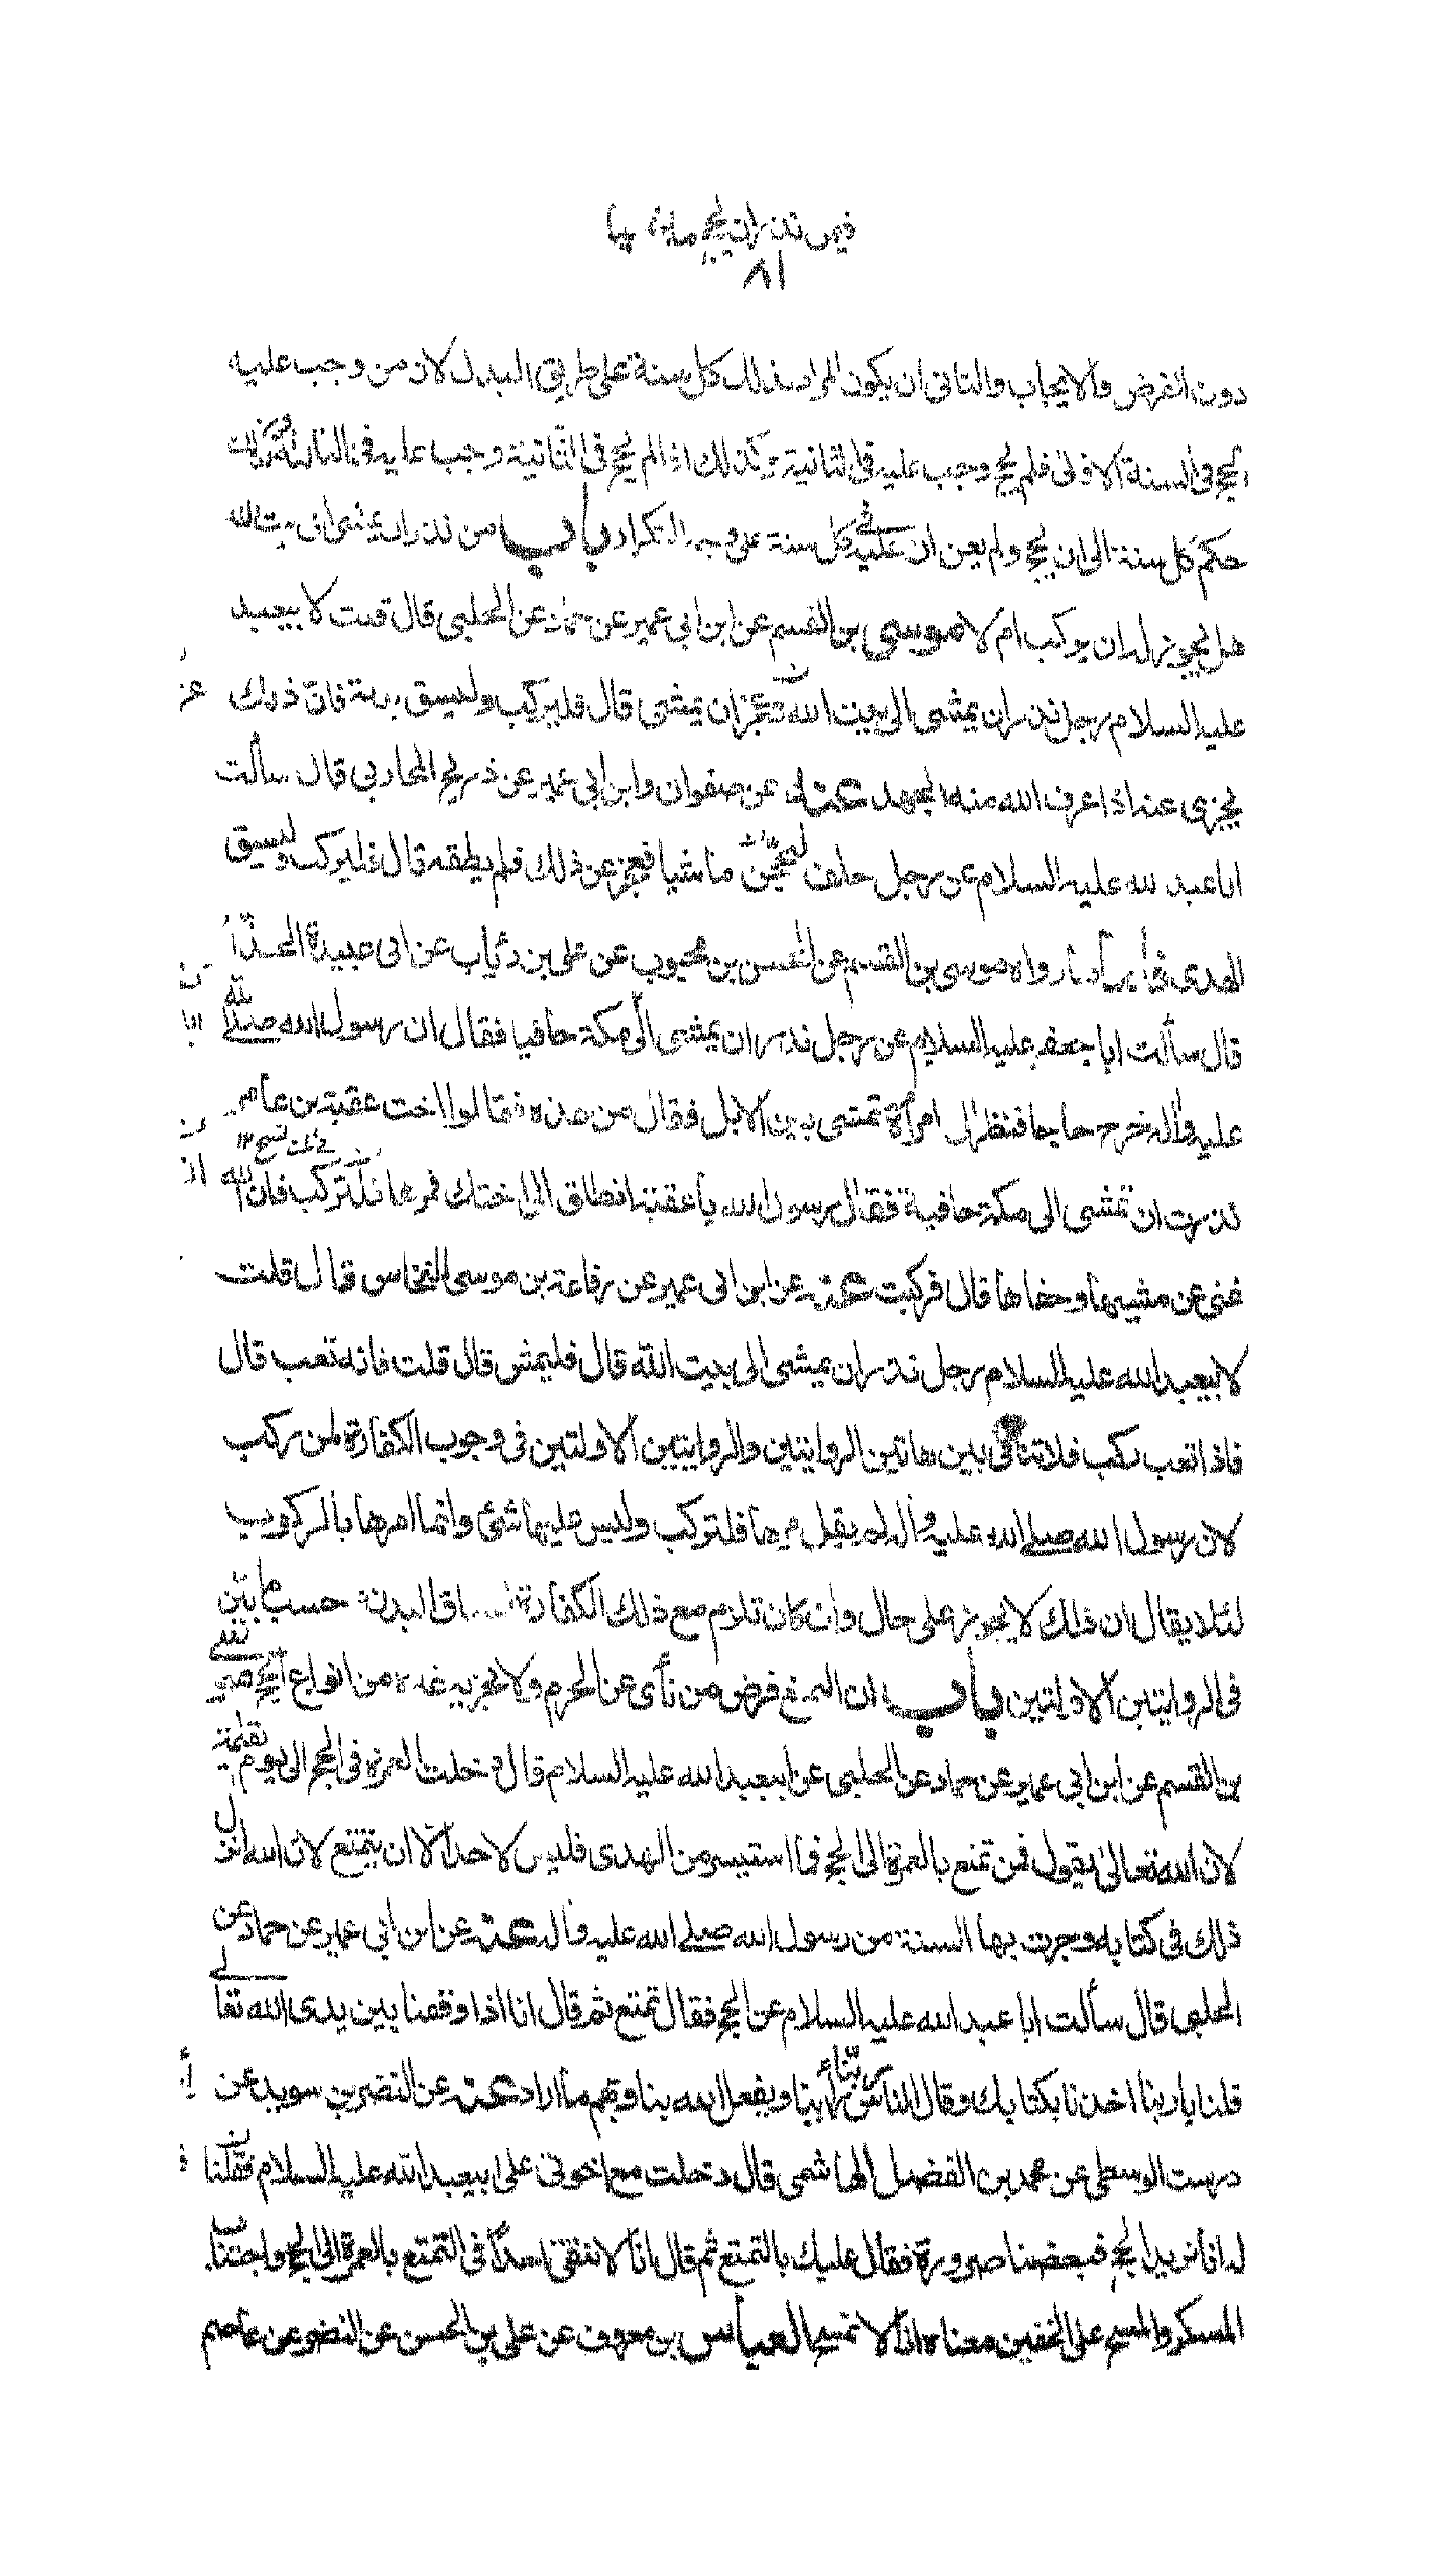 فيمن نذر ان يحج ماشيا
٨١
دون الفرض والايجاب والثانى ان يكون المراد بذلك كل سنة على طريق البدل لان من وجب عليه
الحج فى السنة الاولى فلم يحج وجب عليه فى الثانية وكذلك اذا لم يحج فى الثانية وجب عليه فى الثالثة
حكم كل سنة الى ان يحج ولم يعن ان عليه فى كل سنة على وجه التكرار باب من نذر ان يمشى الى بيت الله
هل يجوز له ان يركب ام لا موسى بن القسم عن ابن ابى عمير عن حماد عن الحلبى قال قلت لابيعبد
عليه السلام رجل نذر ان يمشى الى بيت الله فعجز ان يمشى قال فليركب وليسق بدنة فان ذلك
يجزى عنه اذا عرف الله منه الجهد عنه عن صفوان وابن ابى عمير عن ذريح المحاربى قال سألت
اباعبد لله عليه السلام عن رجل حلف ليحجن ماشيا فعجز عن ذلك فلم يطقه قال فليركب وليسق
الهدى فأما ما رواه موسى بن القسم عن الحسن بن محبوب عن على بن رئاب عن ابى عبيدة الحذاء
قال سألت اباجعفر عليه السلام عن رجل نذر ان يمشى الى مكة حافيا فقال ان رسول الله صلى الله
عليه واله خرج حاجا فنظر الى امرأة تمشى بين الابل فقال من هذه فقالوا اخت عقبة بن عامر
نذرت ان تمشى الى مكة حافية فقال رسول الله يا عقبة انطلق الى اختك فمرها فلتركب فان الله
غنى عن مشيها وحفاها قال فركبت عنه عن ابن ابى عمير عن رفاعة بن موسى النخاس قال قلت
لابيعبد الله عليه السلام رجل نذر ان يمشى الى بيت الله قال فليمش قال قلت فانه تعب قال
فاذا تعب ركب فلا تنافى بين هاتين الروايتين والروايتين الاولتين فى وجوب الكفارة لمن ركب
لان رسول الله صلى الله عليه واله لم يقل مرها فلتركب وليس عليها شئ وانما امرها بالركوب
لئلا يقال ان ذلك لا يجوز على حال وان كان تلزم مع ذلك الكفارة سياق البدنة حسب ما بين
فى الروايتين الاولتين باب ان التمتع فرض من نأى عن الحرم ولا تجزيه غيره من انواع الحج
بن القسم عن ابن ابى عمير عن حماد عن الحلبى عن ابيعبد الله عليه السلام قال دخلت العمرة فى الحج الى يوم القيمة
لان الله تعالى يقول فمن تمتع بالعمرة الى الحج فما استيسر من الهدى فليس لاحد الا ان يتمتع لان الله انزل
ذلك فى كتابه وجرت بها السنة من رسول الله صلى الله عليه واله عنه عن ابن ابى عمير عن حماد عن
الحلبى قال سألت ابا عبد الله عليه السلام عن الحج فقال تمتع ثم قال انا اذا وقفنا بين يدى الله تعالى
قلنا يا ربنا اخذنا بكتابك وقال الناس رأينا رأينا ويفعل الله بنا وبهم ما اراد عنه عن النضر بن سويد عن
درست الوسطى عن محمد بن الفضل الهاشمى قال دخلت مع اخوتى على ابيعبد الله عليه السلام فقلنا
له انا نريد الحج فبعضنا صرورة فقال عليك بالتمتع ثم قال انا لا نتقى احدا فى التمتع بالعمرة الى الحج واجتناب
المسكر والمسح على الخفين معناه انا لا نمسح العباس بن معروف عن على بن الحسن عن النضر عن عاصم